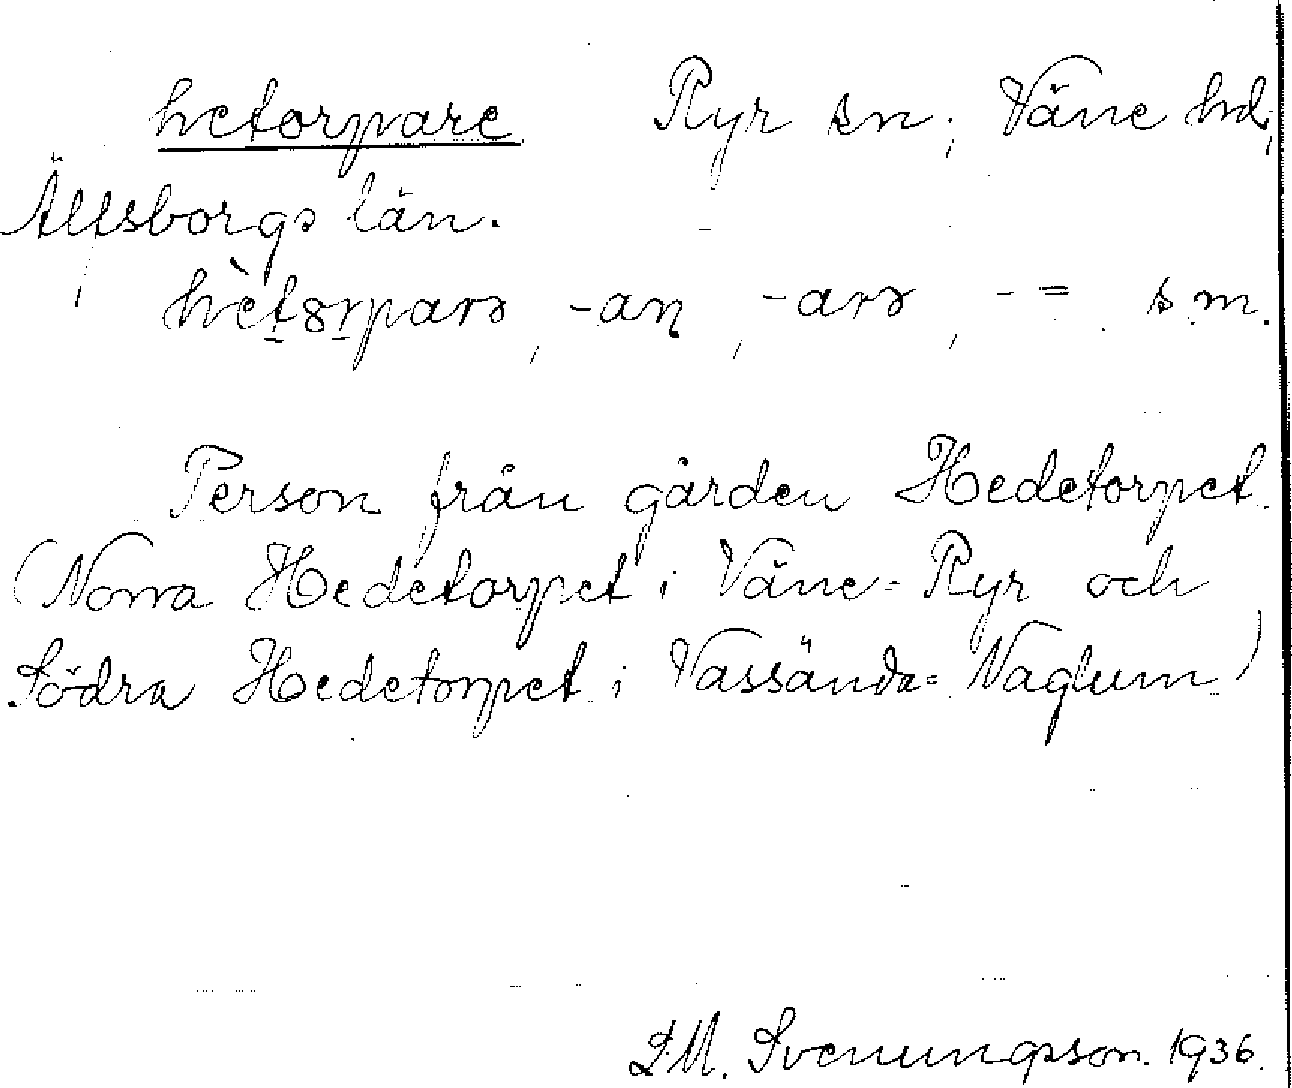 hetorpare Ryr sn, Väne hd,
Älfsborgs län.
hètꞩrparə, -aɳ, -arə, - = s.m.
Person från gården Hedetorpet.
(Norra Hedetorpet i Väne-Ryr och
Södra Hedetorpet i Vassända-Naglum)
D.M. Svenungsson. 1936.